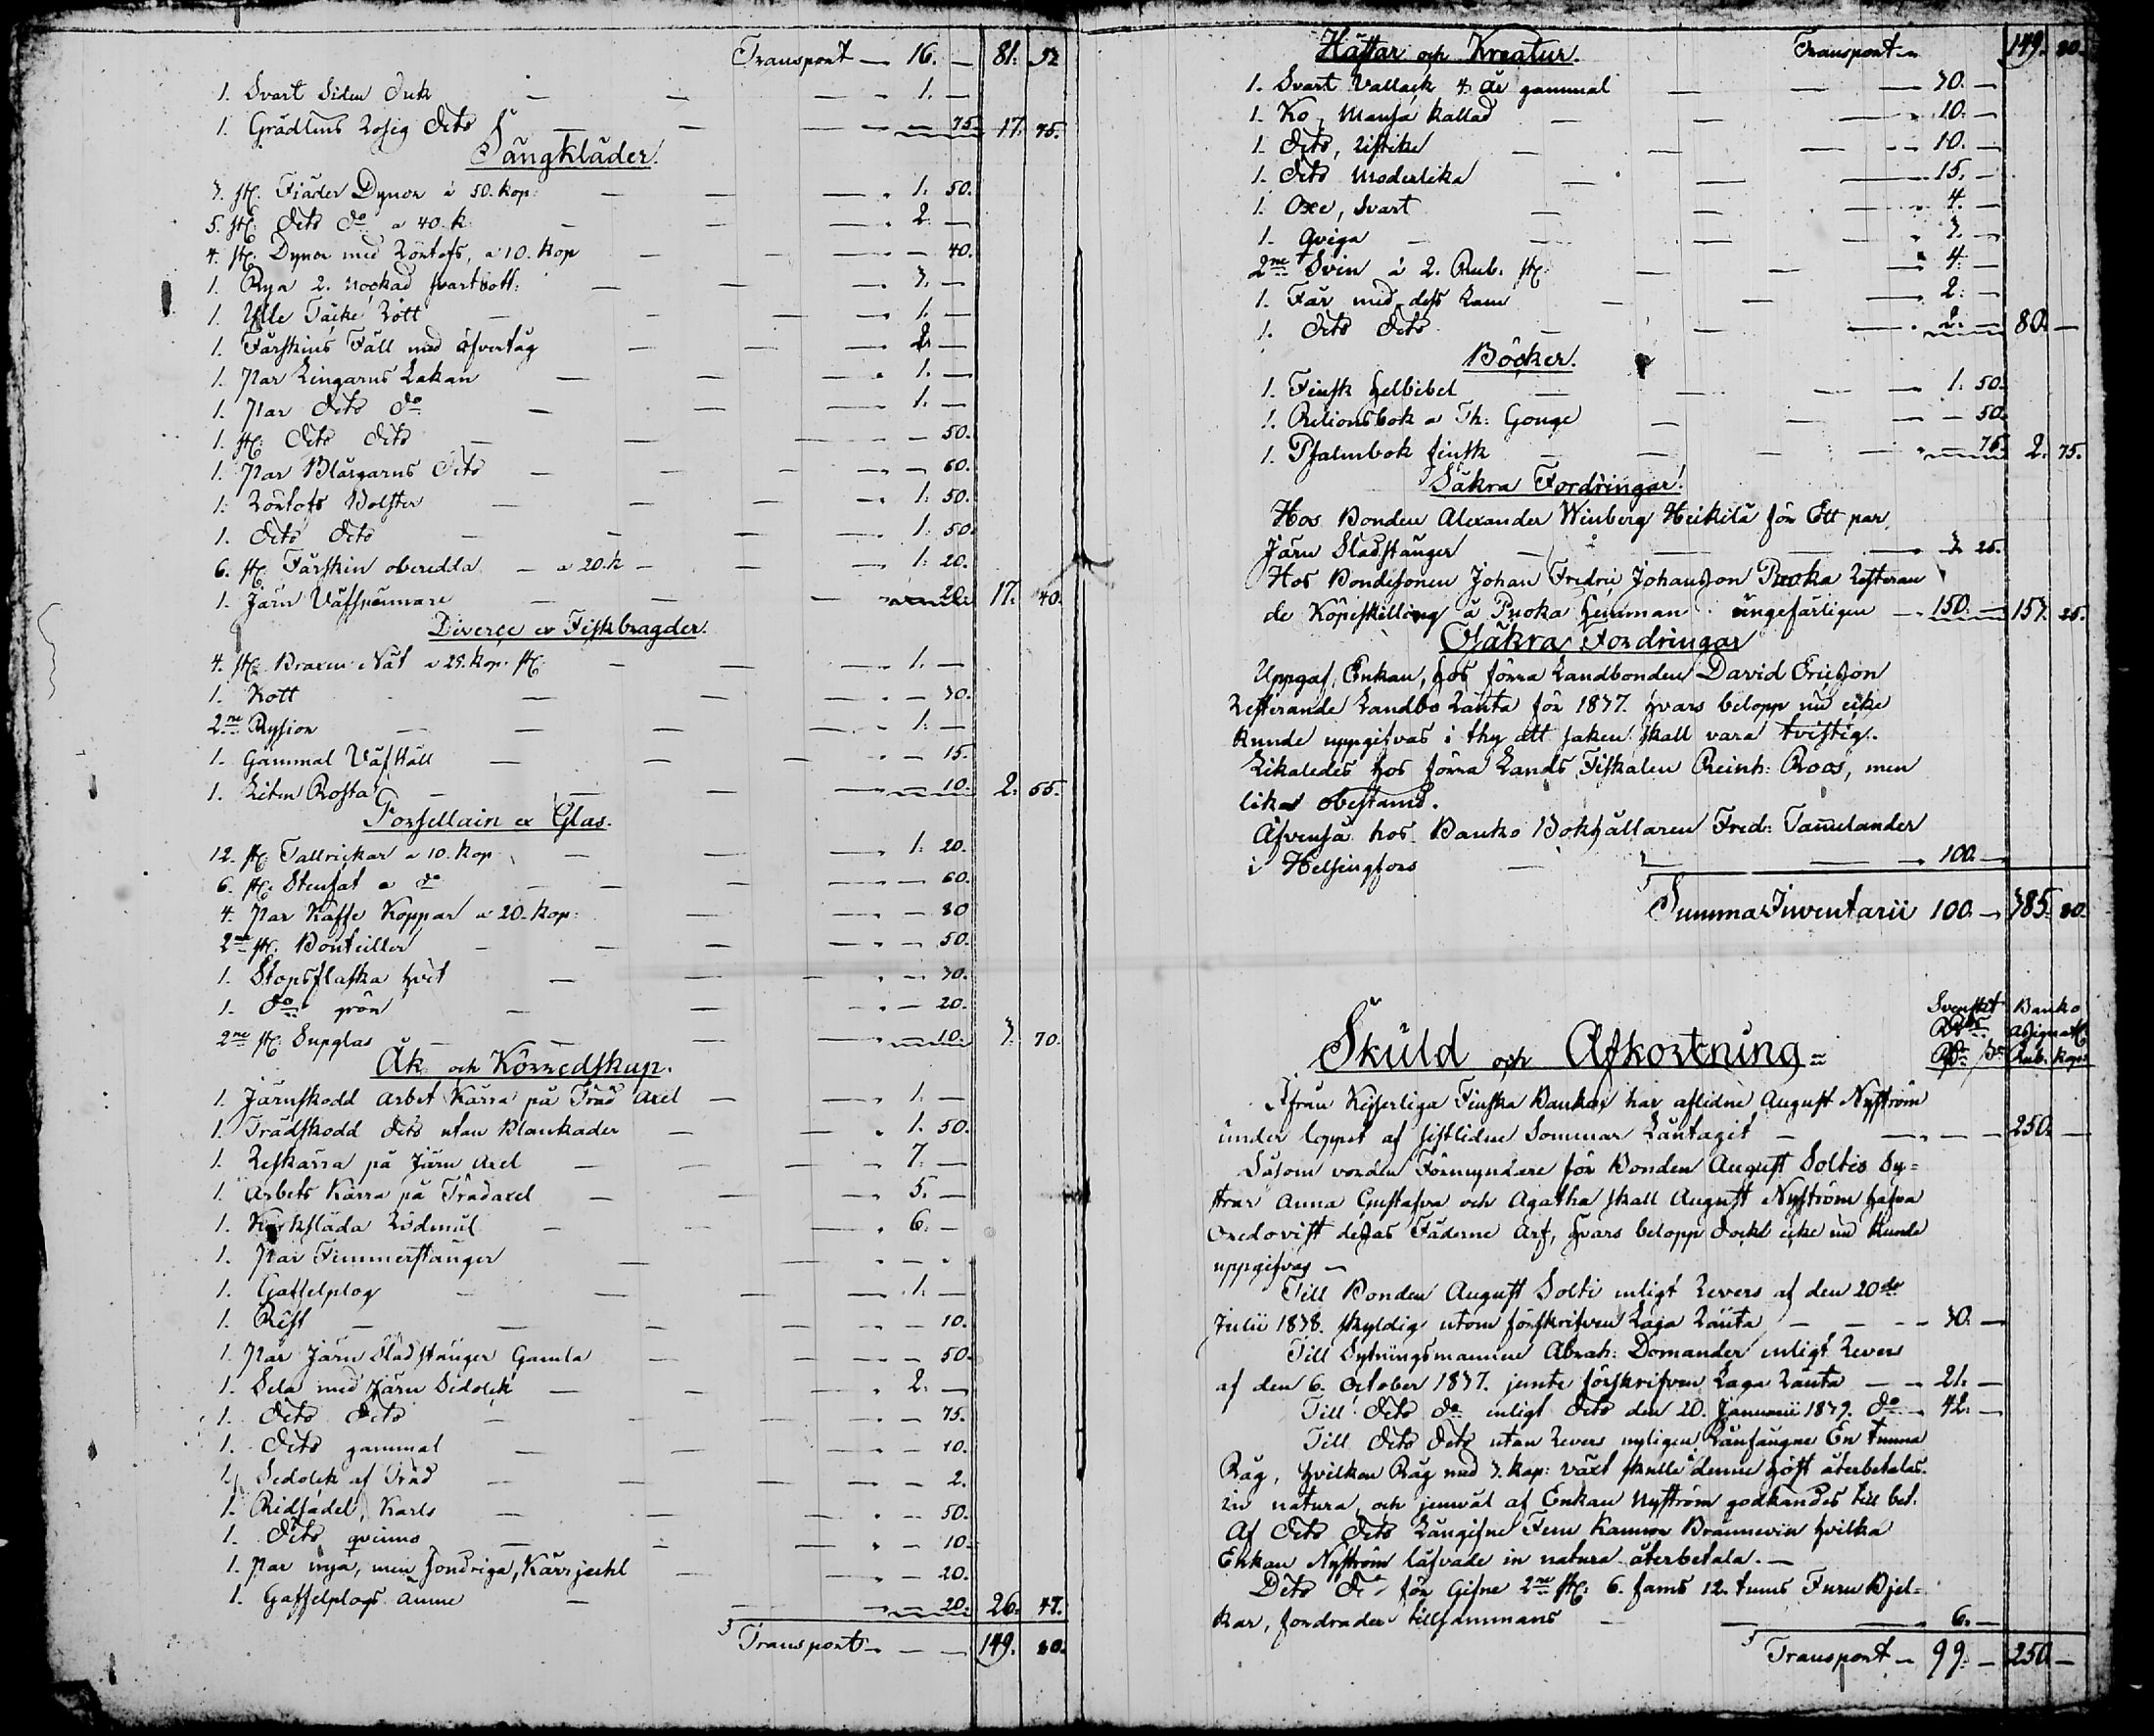 Transport — 16. — 81. 52
1. Svart Siden Duk — — — 1. —
1. Grådlins Rosig Dito — — — 75. 17. 75.
Sängkläder.
3. st. Fjäder Dynor à 50. kop: — — — 1. 50.
5. st. Dito Do a 40. k — — — 2. —
4. st. Dynor med Rörtofs, a 10. kop — — — 40.
1. Rya 2. nockad svartbott: — — — 3. —
1. Ulle Täcke Rött — — — 1. —
1. Fårskins Fäll med öfvertåg — — — 2. —
1. Par Lingarns Lakan — — — 1. —
1. Par Dito Do — — — 1. —
1. st. Dito Dito — — — 50.
1. Par Blårgarns Dito — — — 60.
1. Rörtofs Bolster — — — 1. 50.
1. Dito Dito — — — 1. 50.
6. st. Fårskin oberedda — a 20. k — — — 1. 20.
1. Järn Väfspännare — — — 20. 17. 40.
Diverse ex Fiskbragder.
4. st. Braxen Nät a 25. kop. st. — — — 1. —
1. Kott — — — 30.
2ne Rysior — — — 1. —
1. Gammal Väfställ — — — 15.
1. Liten Rosta — — — 10. 2. 55.
Porsellain ex Glas.
12. st. Tallrickar a 10. kop — — — 1. 20.
6. st. Stenfat a do — — — 60.
4. Par Kaffe Koppar a 20. kop: — — — 80
2ne st. Bouteiller — — — 50.
1. Stopsflaska hvit — — — 30.
1. Do grön — — — 20.
2ne st. Supglas — — — 10. 3. 70.
Åk och Körredskap.
1. Järnskodd Arbet Kärra på Träd Axel — — 1. —
1. Trädskodd Dito utan Blankader — — 1. 50.
1. Reskärra på Järn Axel — — — 7. —
1. Arbets Kärra på Trädaxel — — — 5. —
1. Kyrksläda Rödmål — — — 6. —
1. Par Timmerstänger — — — —
1. Gaffelplog — — — 1. —
1. Rist — — — 10.
1. Par Järn Slädstänger Gamla — — — 50.
1. Sela med Järn Sedolek — — — 2. —
1. Dito Dito — — — 75.
1. Dito gammal — — — 10.
1. Sedolek af Träd — — — 2.
1. Ridsadel, Karls — — — 50.
1. Dito qvinns — — — 10.
1. Par nya, men Kärrjuhl — — — 20.
1. Gaffelplogs Ämne — — — 20. 26. 47.
Transport — — — 149. 80.
Hästar och Kreatur. Transport — 149. 80.
1. Svart Vallack 4. år gammal — — — 30. —
1. Ko, Mansa kallad — — — 10. —
1. Dito, Ristike — — — 10. —
1. Dito Moderlika — — — 15. —
1. Oxe, Svart — — — 4. —
1. Qviga — — — 3. —
2ne Svin à 2. Rub. st. — — — 4. —
1. Får med dess Lam — — — 2. —
1. Dito Dito — — — 2. — 80. —
Böcker.
1. Finsk Helbibel — — — 1. 50.
1. Relionsbok a Th: Gouge — — — 50.
1. Psalmbok finsk — — — 75. 2. 75.
Säkra Fordringar.
Hos Bonden Alexander Winberg Heikilä för Ett par
Järn Slädstänger — — — 3. 25.
Hos Bondesonen Johan Fredric Johansson Puoka Resteran
de Köpeskilling å Puoka Hemman ungefärligen — 150. — 153. 25.
Osäkra Fordringar
Uppgaf, Enkan, hos förra Landbonden David Ericsson
Resterande Landbo Ränta för 1837. hvars belopp nu icke
kunde uppgifvas i thy att saken skall vara tvistig.
Likaledes hos förra Lands Fiskalen Reinh: Roos, men
lika obestämd.
Äfvenså hos Banko Bokhållaren Fred: Tammelander
i Helsingfors — — — 100. —
Summa Inventarii 100. — 385. 80.
Svenskt Banko
Rdr assignat
Rdr s. Rub. kop.
Skuld och Afkortning =
Ifrån Kejserliga Finska Banken har aflidne August Nyström
under loppet af sistlidne Sommar Låntagit — — — — 250. —
Såsom vorden Förmyndare för Bonden August Soltis Sy=
strar Anna Gustafva och Agatha skall August Nyström hafva
Oredovist dessas Fäderne Arf, hvars belopp dock icke nu kunde
uppgifvas —
Till Bonden August Solti enligt Revers af den 20de
Julii 1838. skyldig utom förskrifven Laga Ränta — — — 30. —
Till Sytningsmannen Abrah: Domander enligt Revers
af den 6. October 1837. jemte förskrifven Laga Ränta — — 21. —
Till Dito Do enligt Dito den 20. Januarii 1839. Do — 42. —
Till Dito Dito utan Revers nyligen Lånfångne En tunna
Råg, hvilken Råg med 3. kap: växt skulle denne höst återbetalas
in natura, och jemväl af Enkan Nyström godkändes till bet.
Af Dito Dito Långifne Fem Kannor Brännevin hvilka
Enkan Nyström låfvade in natura återbetala. —
Dito Do för Gifne 2ne st. 6. fams 12. tums Furu Bjel=
kar, fordrades tillsammans — — — 6. —
Transport — 99. — 250. —